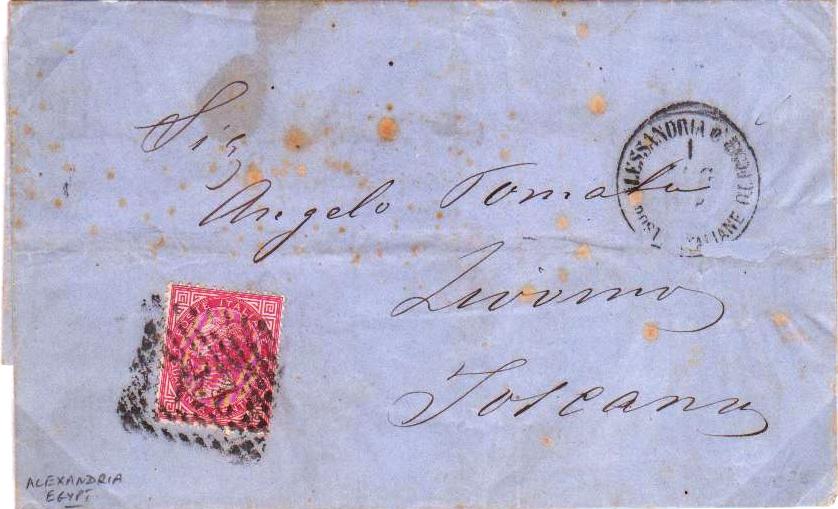 Sig
Angelo Tomati
Livorno
Toscana
ALESSANDRIA D'EGITTO
1
POSTE ITALIANE
POSTE ITALIANE
ALEXANDRIA
EGYPT